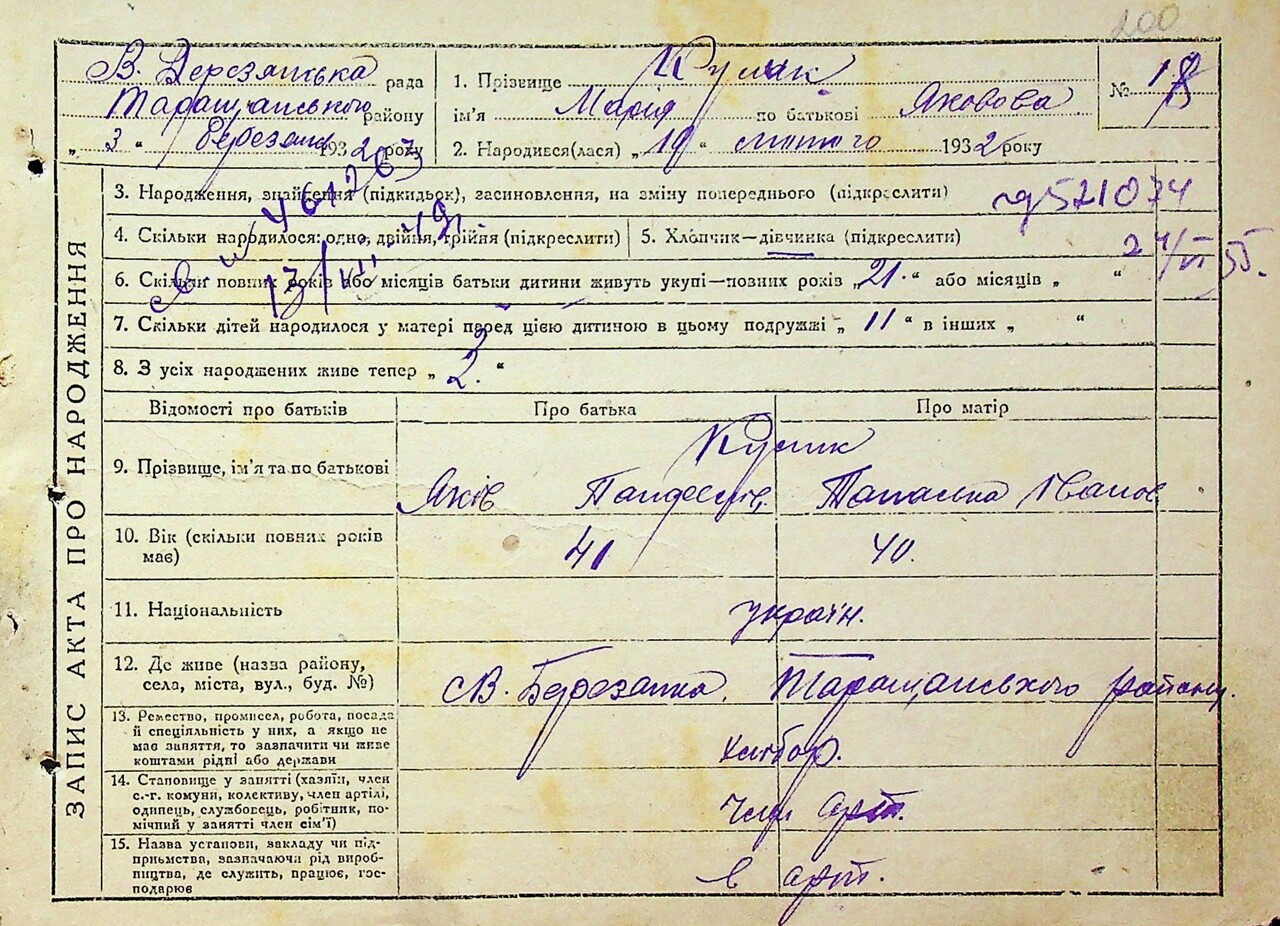 200
В. Березянська рада
Таращанського району
„ 3 “ березня 1932 року
1. Прізвище Кулик
ім'я Марія по батькові Яковова
2. Народився(лася) „ 19 “ лютого 1932 року
№ 18
ЗАПИС АКТА ПРО НАРОДЖЕННЯ
3. Народження, знайдення (підкидьок), засиновлення, на зміну попереднього (підкреслити)
521074
461263
4. Скільки народилося: одно, двійня, трійня (підкреслити)
5. Хлопчик—дівчинка (підкреслити)
24/VI 55.
13/VII-49
6. Скільки повних років або місяців батьки дитини живуть укупі—повних років „ 21. “ або місяців „ “
7. Скільки дітей народилося у матері перед цією дитиною в цьому подружжі „ 11 “ в інших „ “
8. З усіх народжених живе тепер „ 3. “
Відомості про батьків
Про батька
Про матір
9. Прізвище, ім'я та по батькові
Кулик
Яків
Іванов
10. Вік (скільки повних років
має)
41
40.
11. Національність
україн.
12. Де живе (назва району,
села, міста, вул., буд. №)
В. Березанка, Таращанського району.
13. Ремество, промисел, робота, посада
й спеціяльність у них, а якщо не
має заняття, то зазначити чи живе
коштами рідні або держави
хлібор.
14. Становище у занятті (хазяїн, член
с.-г. комуни, колективу, член артілі,
одинець, службовець, робітник, по-
мічний у занятті член сім'ї)
член арт.
15. Назва установи, закладу чи під-
приьмства, зазначаючи рід вироб-
ництва, де служить, працює, гос-
подарює
в арт.